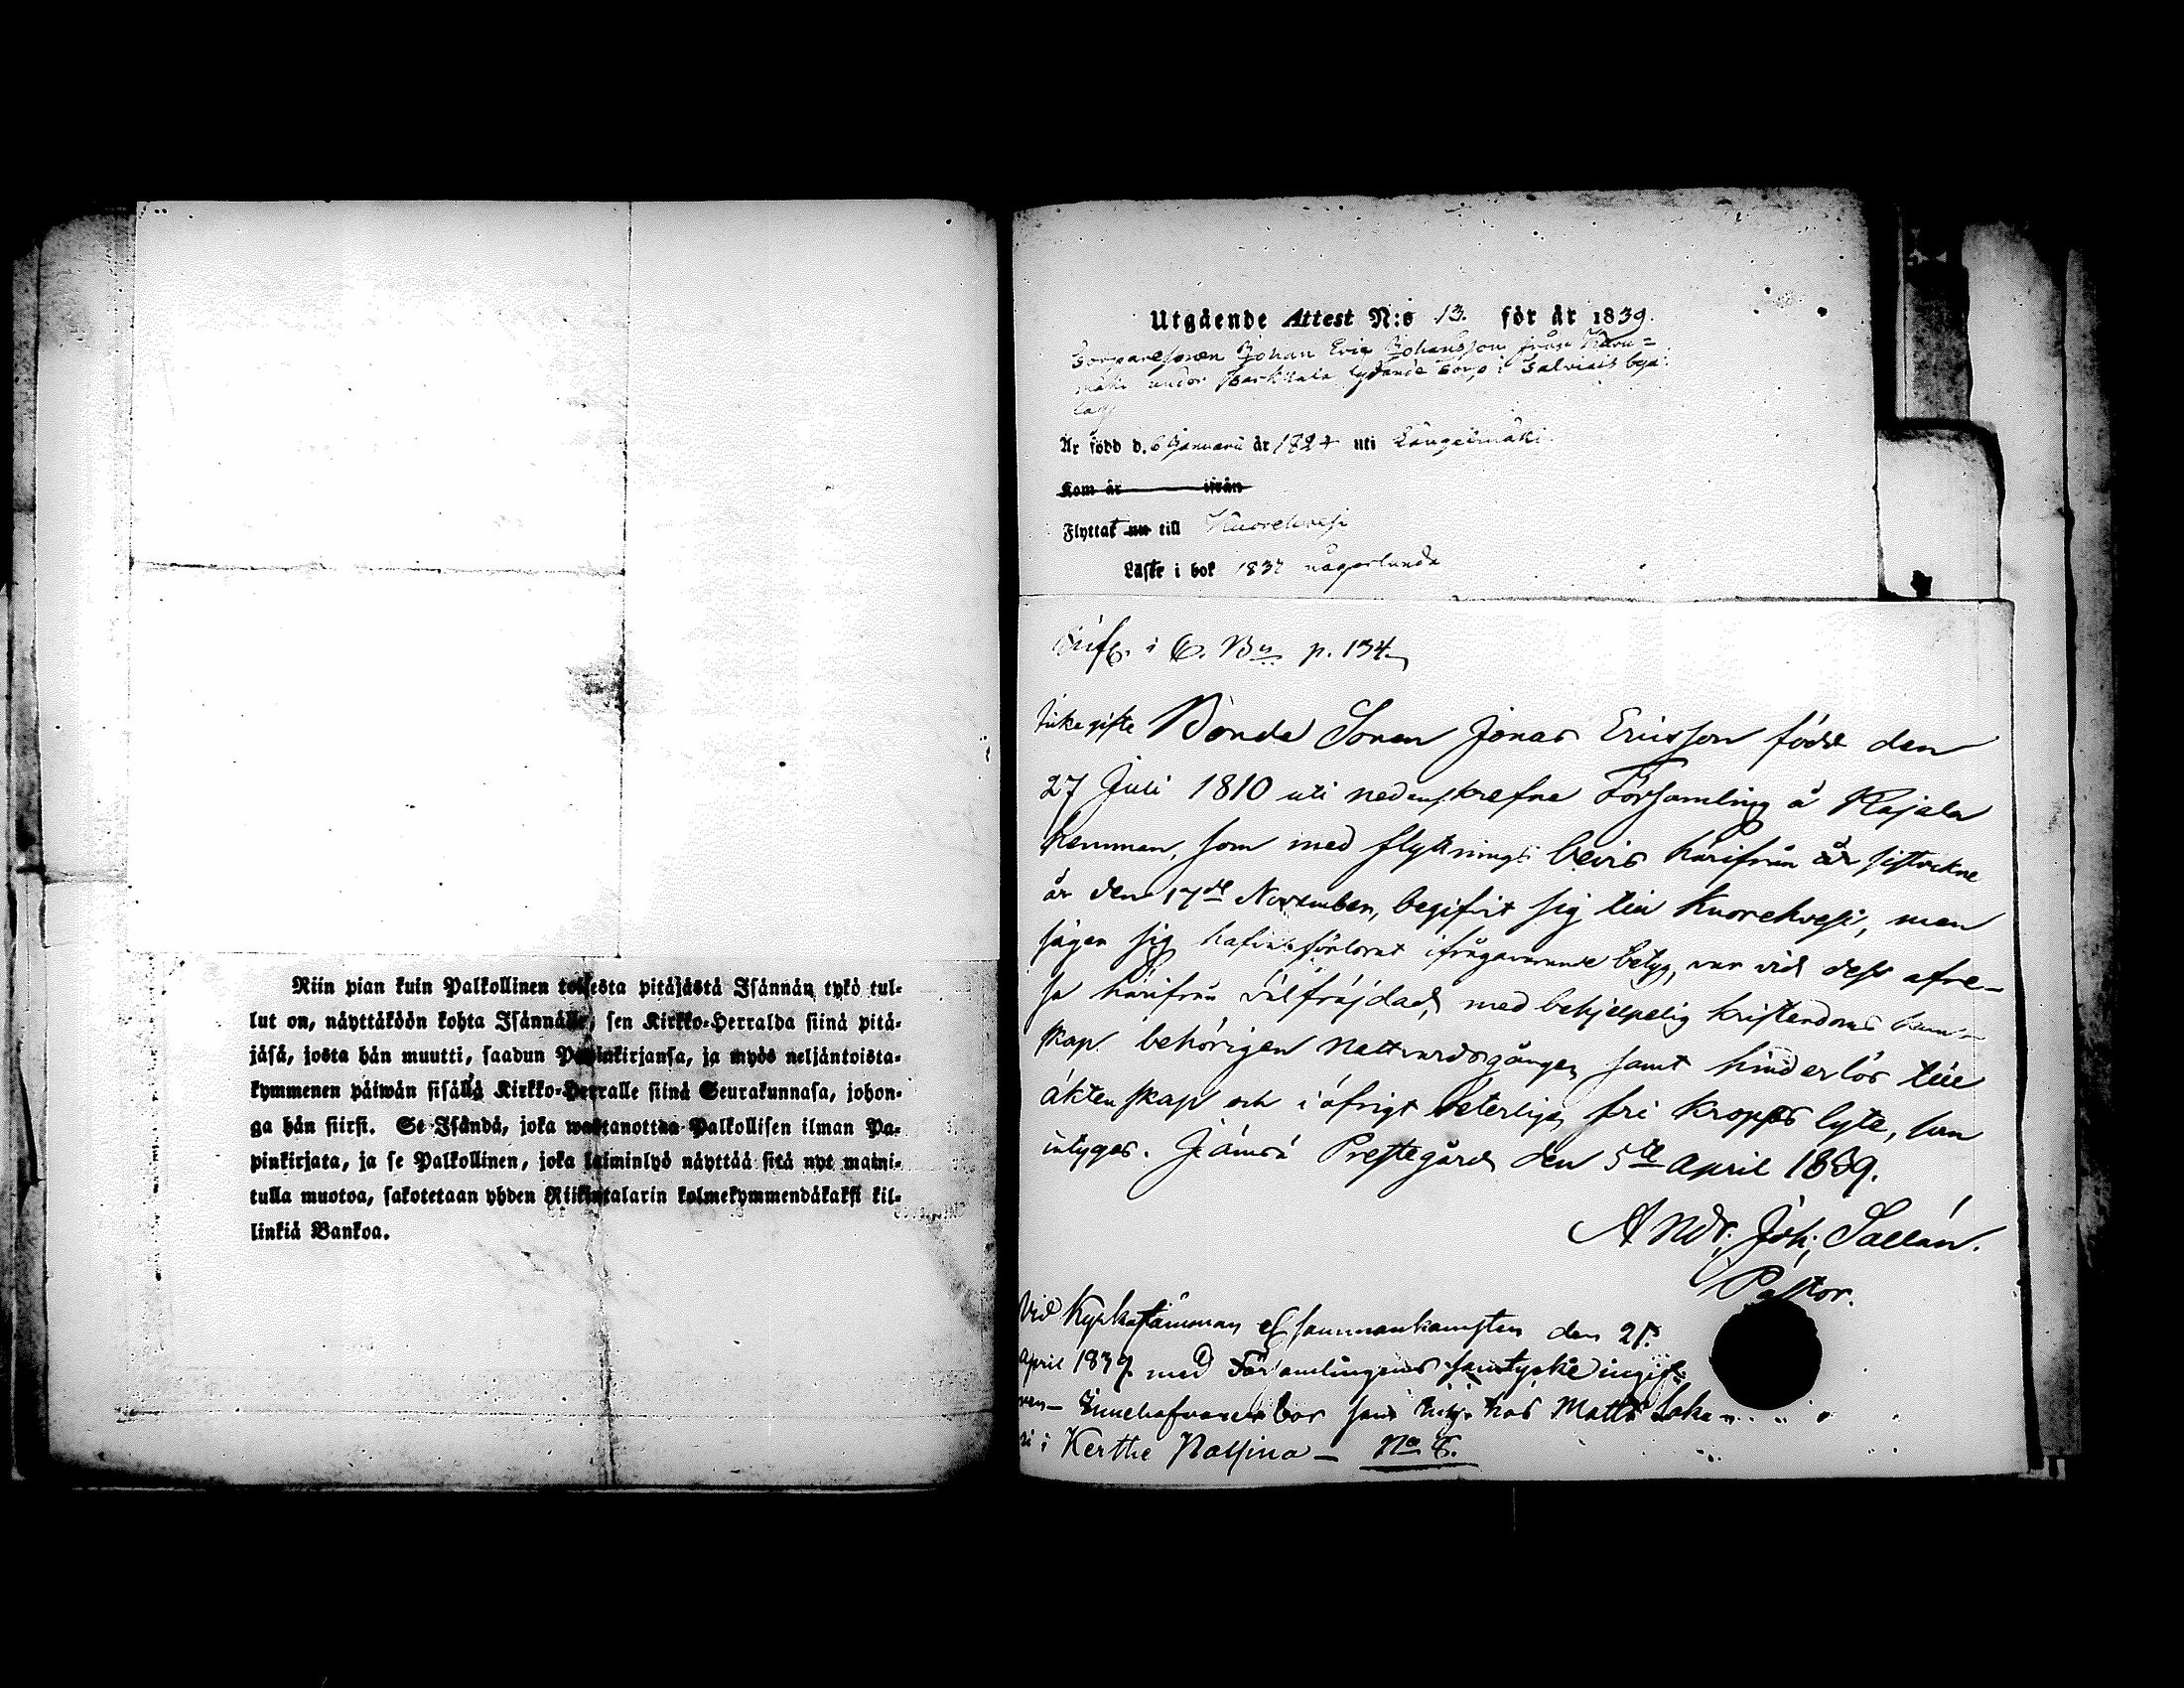 Niin pian kuin Palkollinen toisesta pitäjästä Isännän tykö tul-
lut on, näyttäköön kohta Isännälle, sen Kirkko-Herralda siinä pitä-
jäsä, josta hän muutti, saadun Papinkirjansa, ja myös neljäntoista-
kymmenen päiwän sisällä Kirkko-Herralle siinä Seurakunnasa, johon-
ga hän siirsi. Se Isändä, joka wastanottaa Palkollisen ilman Pa-
pinkirjata, ja se Palkollinen, joka laiminlyö näyttää sitä nyt maini-
tulla muotoa, sakotetaan yhden Riikintalarin kolmekymmendäkaksi kil-
linkiä Bankoa.
Utgående Attest N:o 13. för år 1839.
Torparesonen Johan Eric Johansson från Karu=
mäki under Parkkala lydande Torp i Talviais bya
lag
Är född d. 6 Januarii år 1824 uti Längelmäki
Kom år ifrån
Flyttat nu till Kuorehvesi
Läste i bok 1837 någorlunda
i C. Bn p. 134
Icke gifte Bonde Sonen Jonas Ericsson född den
27 Juli 1810 uti nedanskrefne Församling å Rajala
hemman, som med flyttnings bevis härifrån sistvekne
år den 17de November, begifvit sig till Kuorehvesi, men
säger sig hafva förlorat ifrågavarande betyg, var vid dess afre-
sa härifrån välfräjdad, med behjelpelig kristendoms kun-
skap behörigen nattvardsgången samt hinderlös till
äktenskap och i öfrigt veterligen fri kropps lyte, som
intygas. Jämsä Prestegård den 5te April 1839.
And. Joh. Sallén.
Pastor.
Vid Kyrkostämman sammankomsten den 21.
April 1839 med Församlingens samtycke ingif-
ven Innehafvaren bor som hos Matts
i Kertte Nassina - No 6.